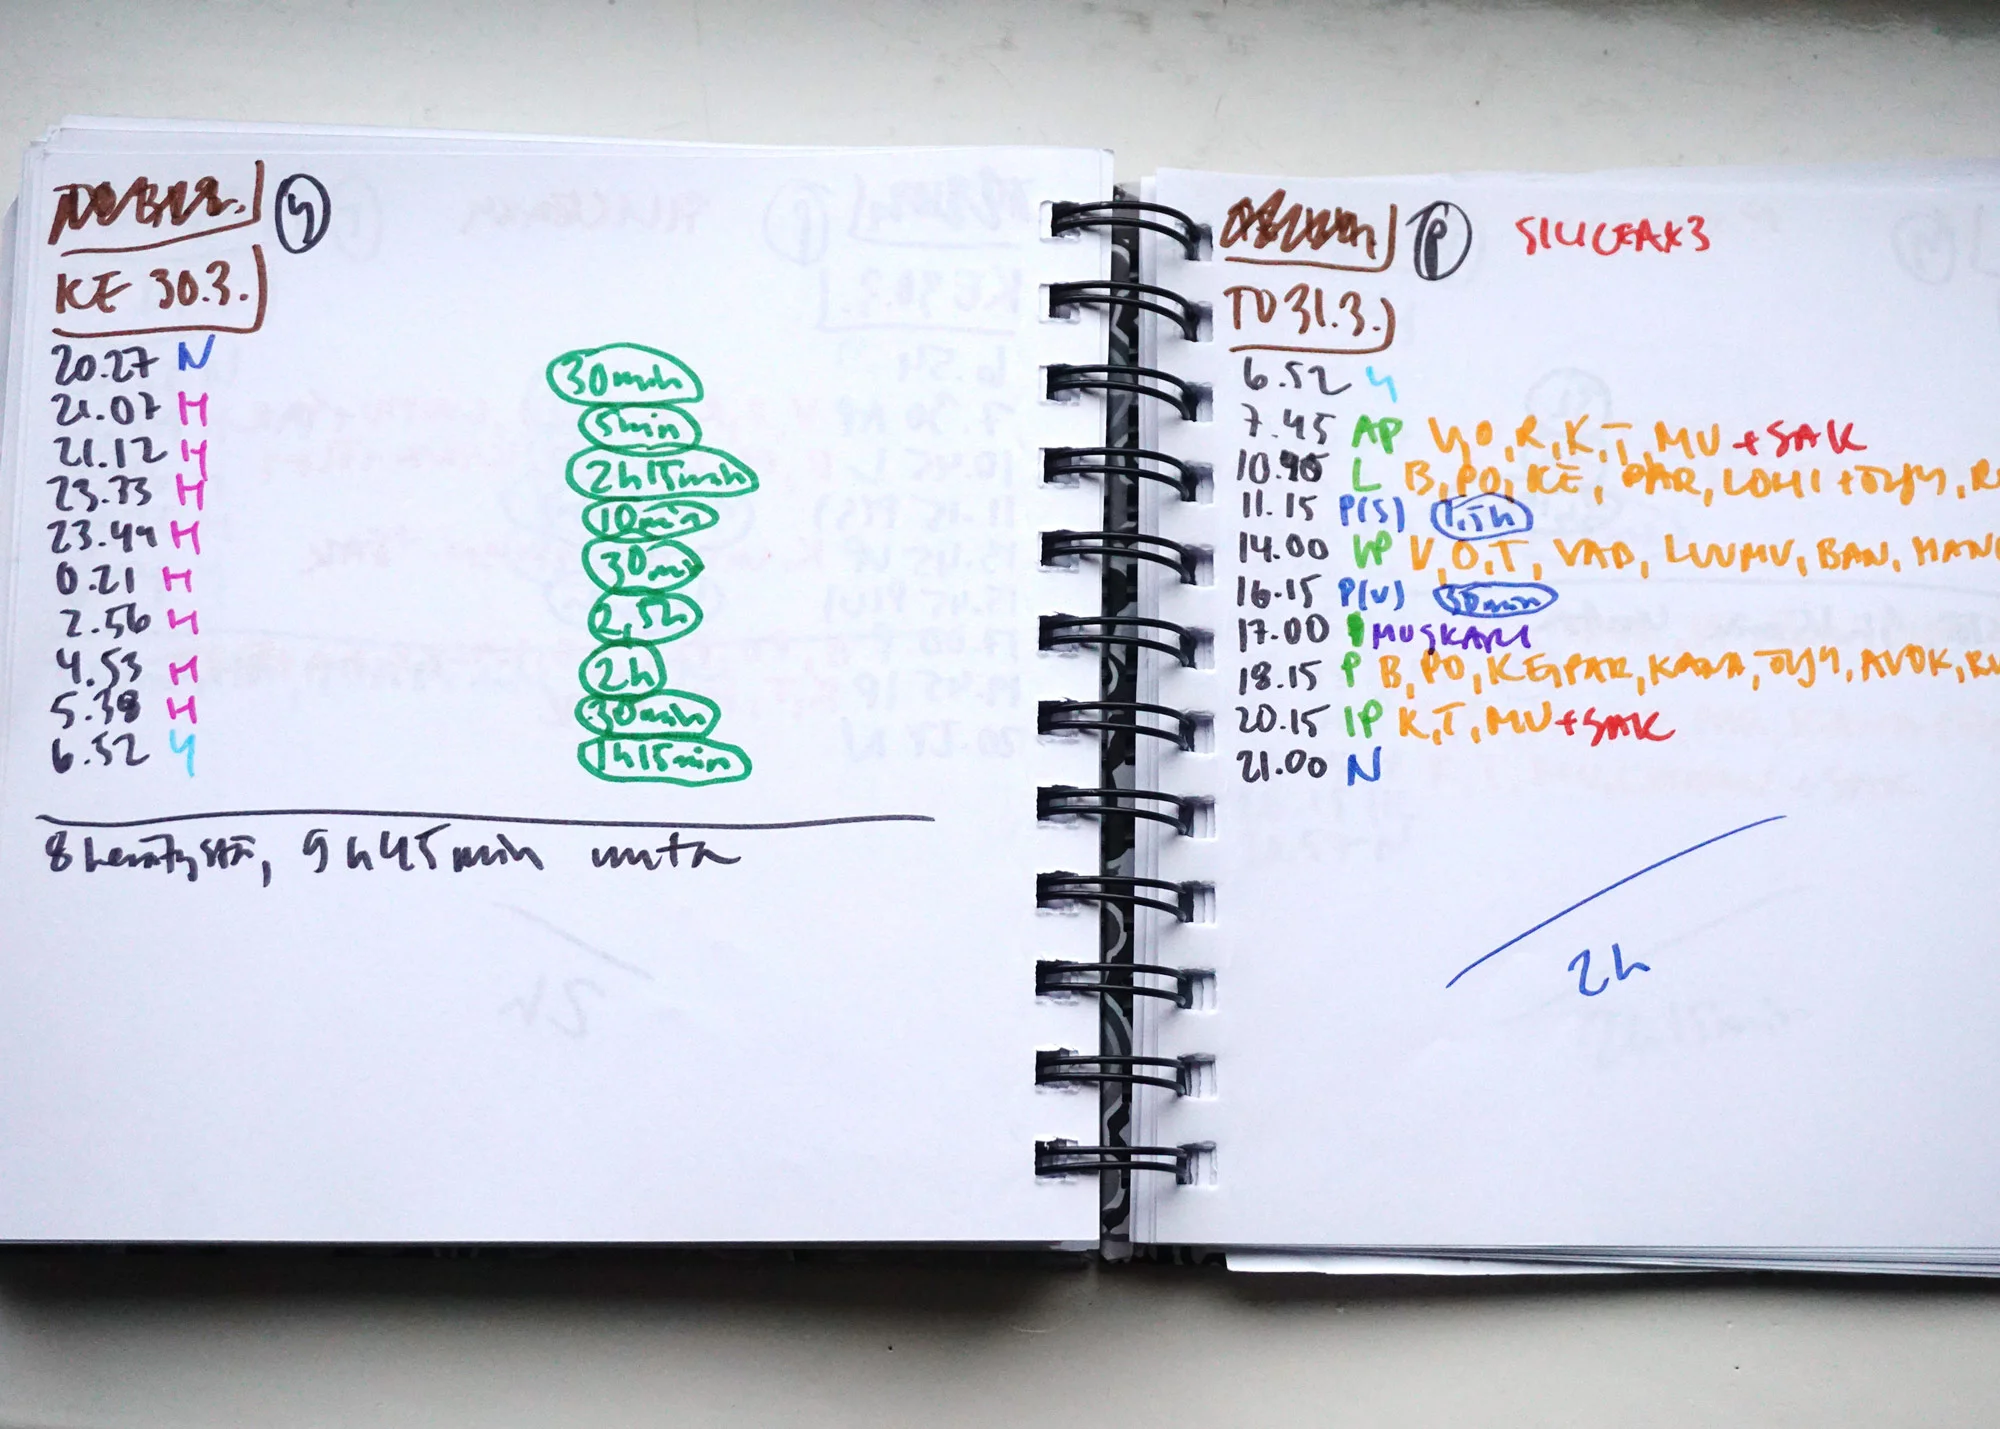 Y
KE 30.3.
20.27 N 30min
21.07 H 5min
21.12 H 2h15min
23.33 H 10min
23.44 H 30min
0.21 H 2,5h
2.56 H 2h
4.53 H 30min
5.38 H 1h15min
6.52 Y
8 herätystä, 9h45min unta
P
TO 31.3.
6.52 Y
7.45 AP V, O, R, K, T, MU + SAK
10.45 L B, PO, KE, PAR, LOHI + ÖLJY,
11.15 P(S) 1,5h
14.00 VP V, O, T, VAD, LUUMU, BAN, MAN
16.15 P(V) 30min
17.00 MUSKARI
18.15 P B, PO, KE, PAR, KANA, ÖLJY, AVOK,
20.15 IP K, T, MU + SAK
21.00 N
2h